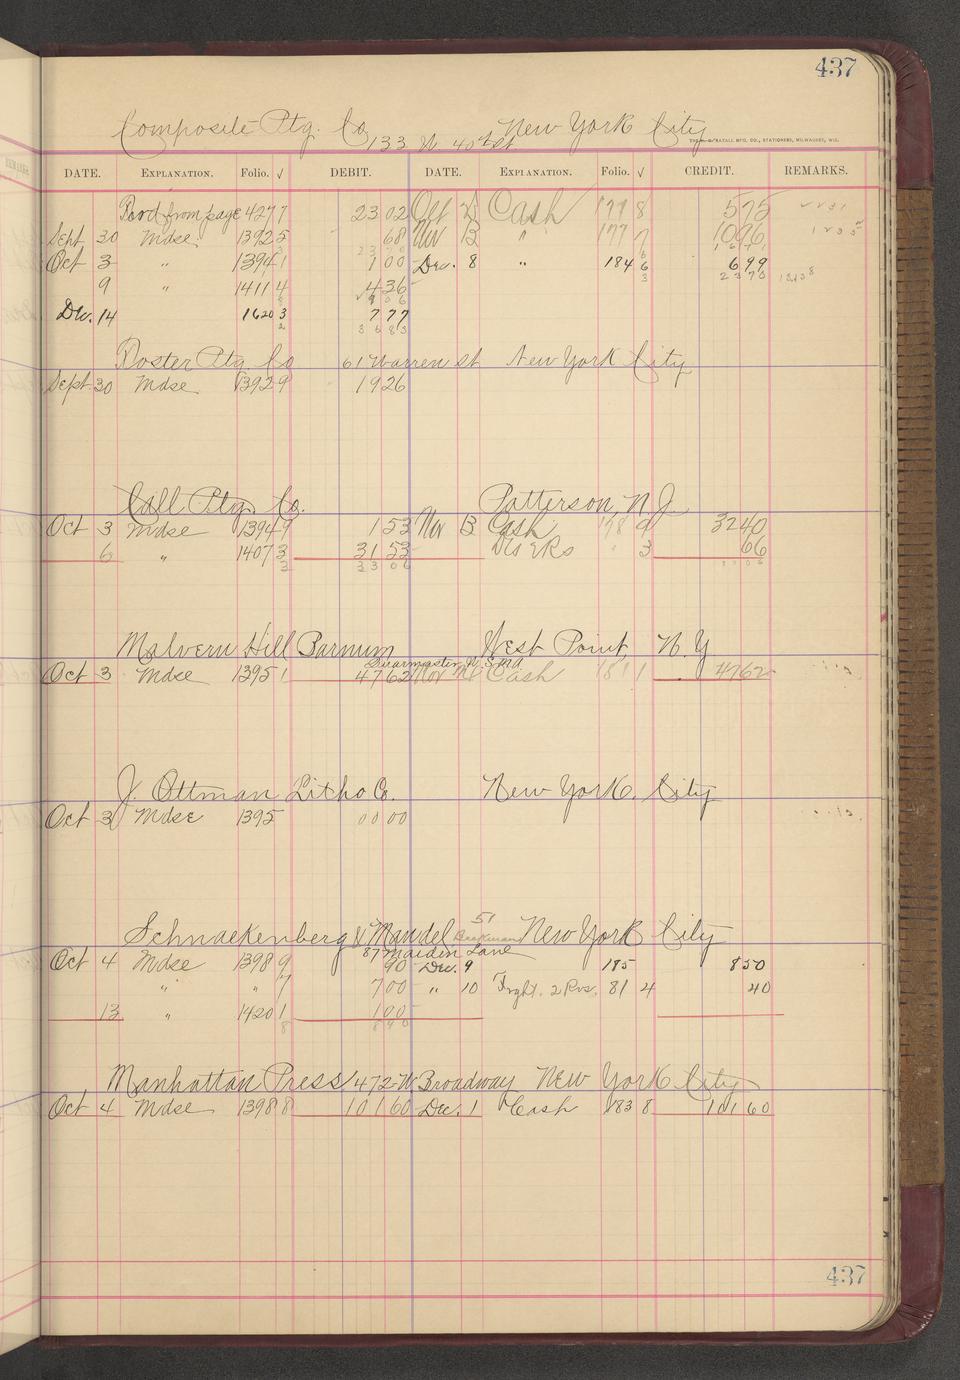 437
Composite Ptg. Co. 133 W 40th St New York City
DATE. EXPLANATION. Folio. √ DEBIT. DATE. EXPLANATION. Folio. √ CREDIT. REMARKS.
from page 427 7 23 02 Oct Cash 177 8 5 75
Sept 30 Mdse. 1392 5 68 Nov 13 " 177 7 10 96
Oct 3 " 1394 1 1 00 Dec. 8 " 184 6 6 99
9 " 1411 4 4 36
Dec. 14 1620 3 7 77
3 6 8 3
Poster Ptg. Co 61 Warren St New York City
Sept. 30 Mdse 1392 9 19 26
Call Ptg. Co. Patterson, N J.
Oct 3 Mdse 1394 9 1 53 Nov 13 Cash 178 9 32 40
6 " 1407 3 31 53 " 3 66
3 3 0 6
Malvern Hill Barnum West Point N. Y
Oct 3 Mdse 1395 1 47 62 Nov Cash 181 1 47 62
J. Ottman Litho Co. New York. City
Oct 3 Mdse 1395 00 00
Schnaekenberg & Mandel 51 Beekman New York City
87 Maiden Lane
Oct 4 Mdse 1398 9 90 Dec. 9 185 8 50
" " 7 7 00 " 10 Frght. 81 4 40
13 " 1420 1 1 00
8 9 0
Manhattan Press 472 W Broadway New York City
Oct 4 Mdse 1398 8 101 60 Dec. 1 Cash 183 8 101 60
437